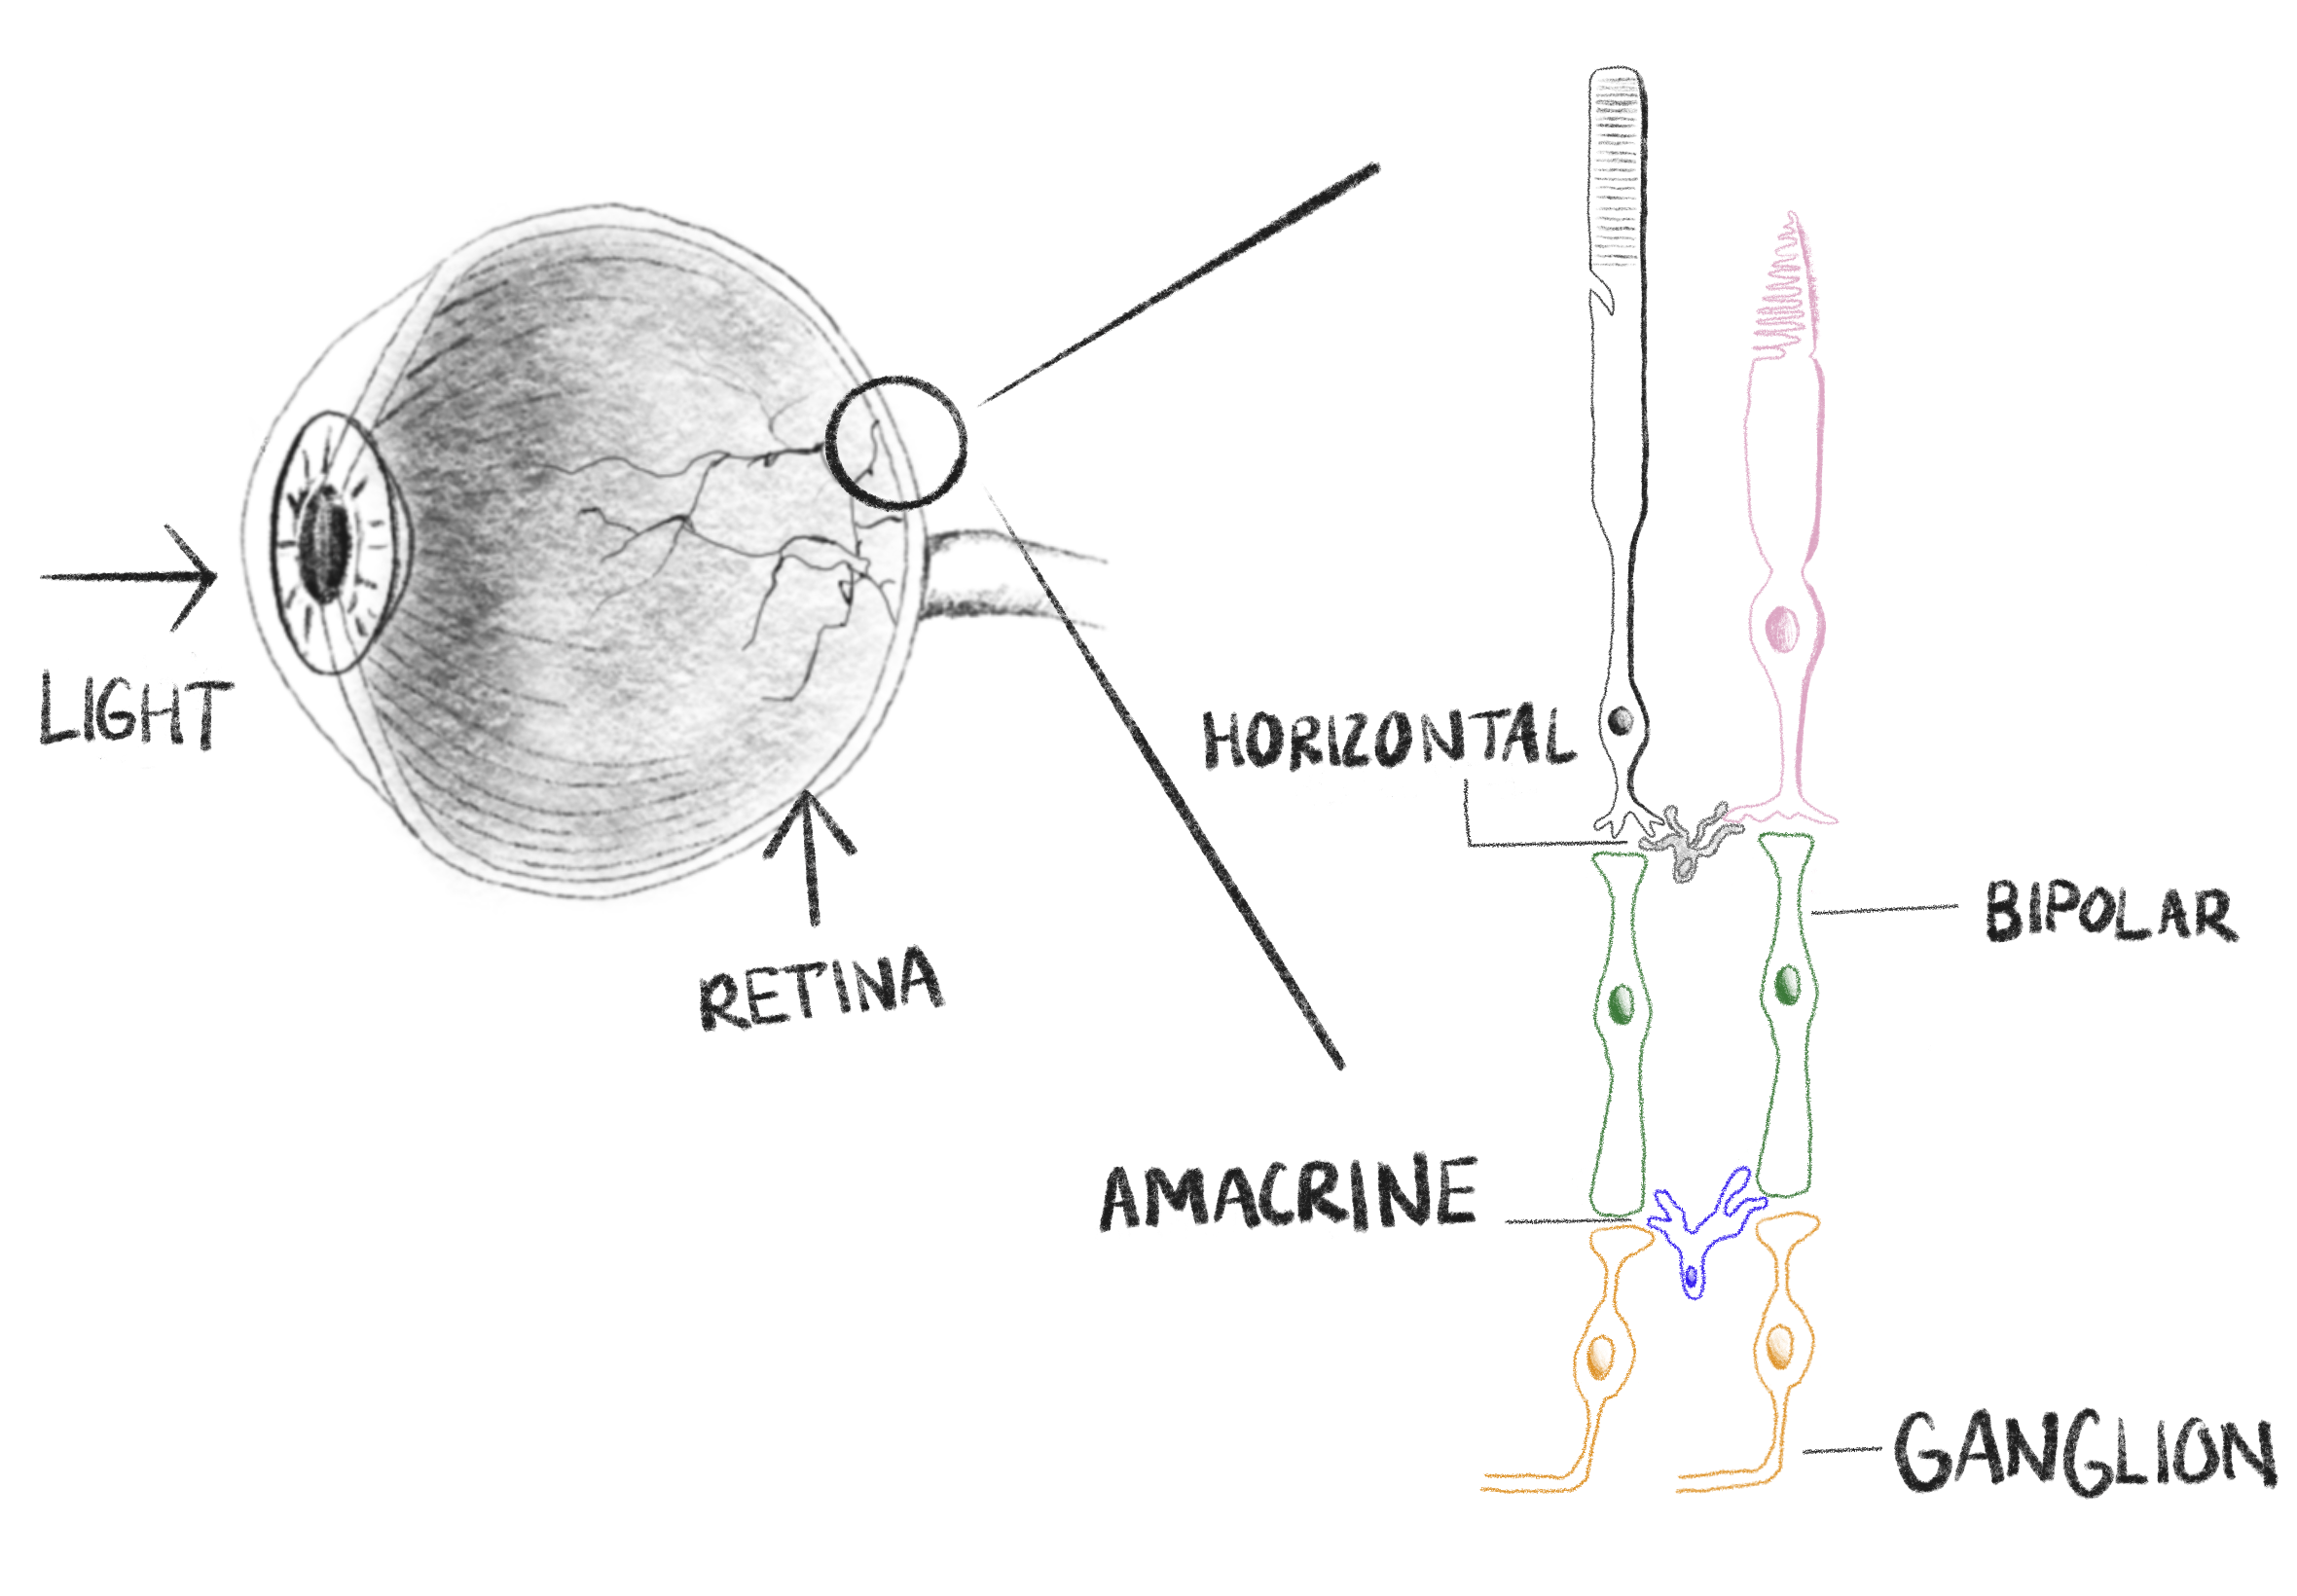 LIGHT
RETINA
HORIZONTAL
BIPOLAR
AMACRINE
GANGLION